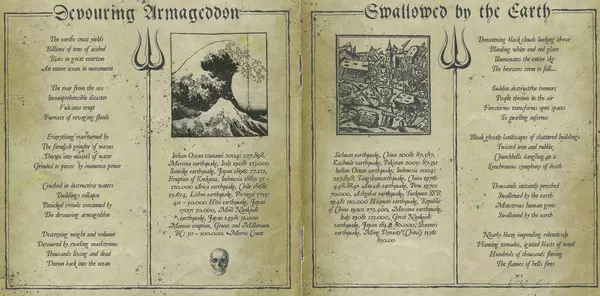 Devouring Armageddon
The earths crust yields
Billions of tons of seabed
Rises in great exertion
An entire ocean in movement
The roar from the sea
Incomprehensible disaster
Volcanic erupt
Furnace of ravaging floods
Everything overturned by
The fiendish grinder of waves
Deeps into mazes of water
Grinded to pieces by immense power
Crushed in destructive waters
Buildings collapse
Panicked crowds consumed by
The devouring armageddon
Destroying weight and volume
Devoured by swirling maelstroms
Thousands living and dead
Drawn back into the ocean
Indian Ocean tsunami 2004: 227,898,
Messina earthquake, Italy 1908: 123,000
Sanriku earthquake, Japan 1896: 27,122,
Eruption of Krakatoa, Indonesia 1883: 36 -
120,000 Arica earthquake, Chile 1868:
25,674, Lisbon earthquake, Portugal 1755:
40 - 50,000 Hōei earthquake, Japan
1707: 30,000, Meiō Nankaidō
earthquake, Japan 1498: 31,000
Minoan eruption, Greece 2nd Millennium
BC: 30 - 100,000.
Swallowed by the Earth
Sichuan earthquake, China 2008: 87,587,
Kashmir earthquake, Pakistan 2005: 87,351
Indian Ocean earthquake, Indonesia 2004:
227,898, Tangshan earthquake, China 1976:
Ancash earthquake, Peru 1970:
Ashgabat earthquake, Turkmen SSR
1948: 110,000 Haiyuan earthquake, Republic
of China 1920: 273,400, Messina earthquake,
Italy 1908: 123,000, Great Nankaidō
earthquake, Japan Shaanxi
earthquake, Ming Dynasty (China) 1556:
830,00
Threatening black clouds lurking above
Blinding white and red glare
Illuminates the entire sky
The heavens seem to fall...
Sudden destructive tremors
People thrown in the air
Firestorms transforms open spaces
To swirling infernos
Bleak ghostly landscapes of shattered buildings
Twisted iron and rubble
Churchbells dangling on a
Synchronous symphony of death
Thousands instantly perished
Swallowed by the earth
Monstrous human pyres
Swallowed by the earth
Nearby blaze impending relentlessly
Flaming tornados, ignited blasts of wind
Hundreds of thousands fleeing
The flames of hells fires